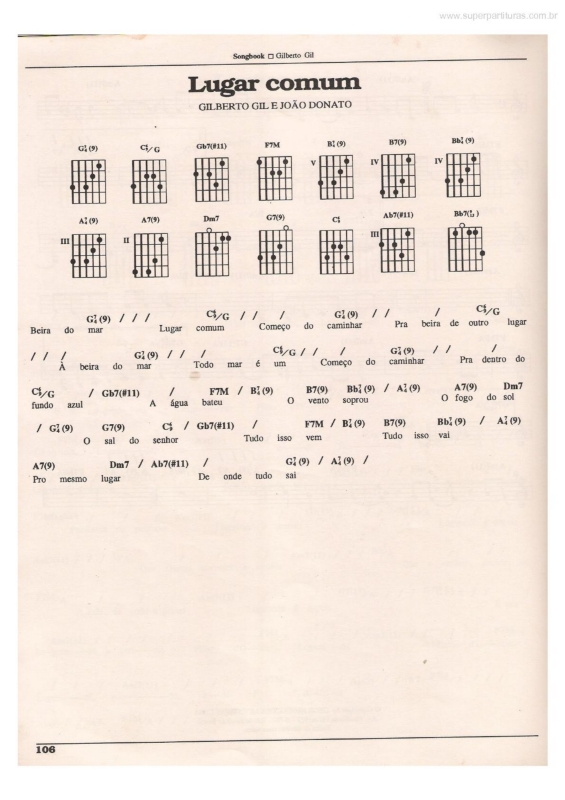 www.superpartituras.com.br
Songbook □ Gilberto Gil
Lugar comum
GILBERTO GIL E JOÃO DONATO
G7/4(9) C6/9/G Gb7(#11) F7M B7/4(9) B7(9) Bb7/4(9)
V IV IV
A7/4(9) A7(9) Dm7 G7(9) C6/9 Ab7(#11) Bb7(
III II III
G7/4(9) / / / C6/9/G / / / G7/4(9) / / / C6/9/G
Beira do mar Lugar comum Começo do caminhar Pra beira de outro lugar
/ / / G7/4(9) / / / C6/9/G / / / G7/4(9) / / /
À beira do mar Todo mar é um Começo do caminhar Pra dentro do
C6/9/G / Gb7(#11) / F7M / B7/4(9) B7(9) Bb7/4(9) / A7/4(9) A7(9) Dm7
fundo azul A água bateu O vento soprou O fogo do sol
/ G7/4(9) G7(9) C6/9 / Gb7(#11) / F7M / B7/4(9) B7(9) Bb7/4(9) / A7/4(9)
O sal do senhor Tudo isso vem Tudo isso vai
A7(9) Dm7 / Ab7(#11) / G7/4(9) / A7/4(9) /
Pro mesmo lugar De onde tudo sai
106